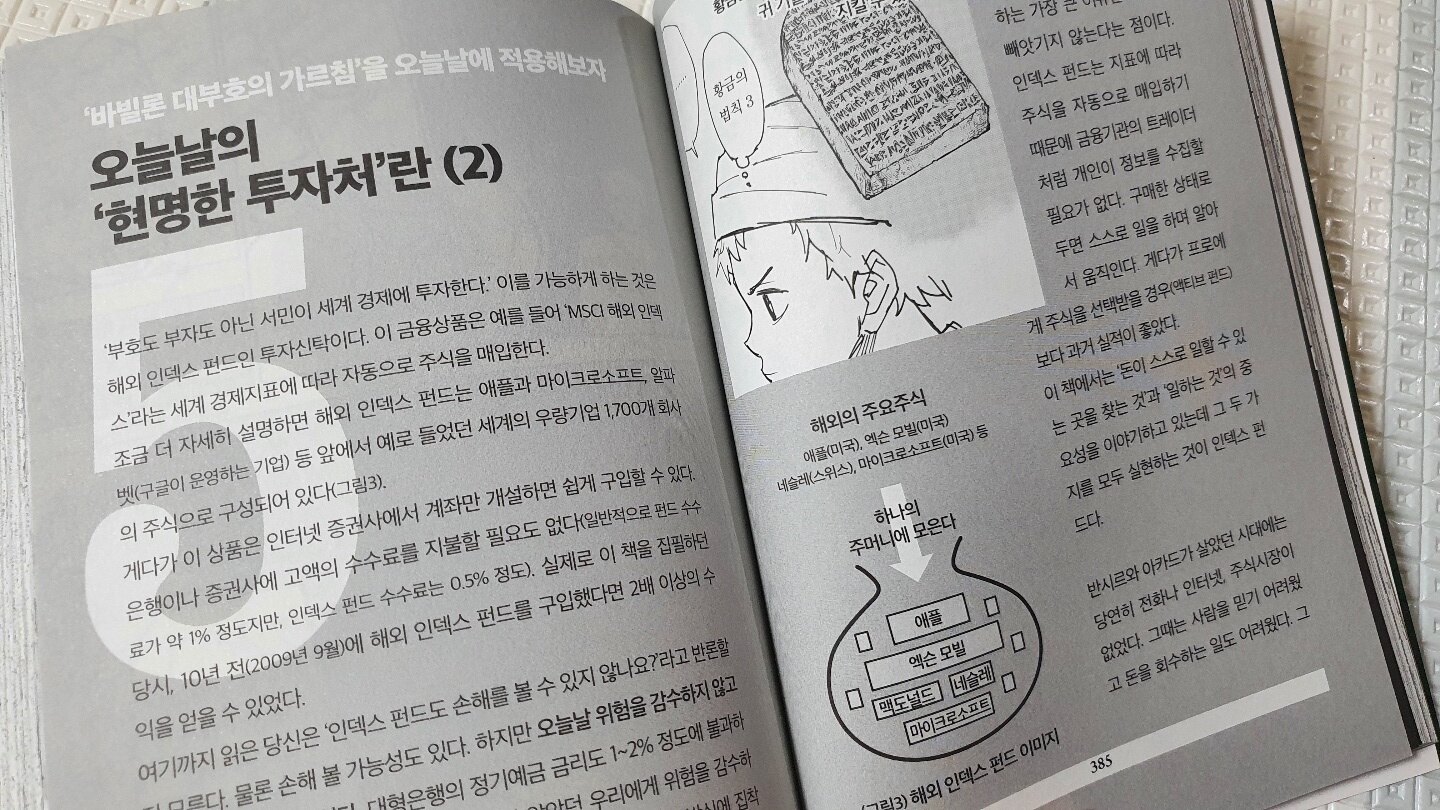 ‘바빌론 대부호의 가르침’을 오늘날에 적용해보자
오늘날의
‘현명한 투자처’란 (2)
5
‘부호도 부자도 아닌 서민이 세계 경제에 투자한다.’ 이를 가능하게 하는 것은
해외 인덱스 펀드인 투자신탁이다. 이 금융상품은 예를 들어 ‘MSCI 해외 인덱
스’라는 세계 경제지표에 따라 자동으로 주식을 매입한다.
조금 더 자세히 설명하면 해외 인덱스 펀드는 애플과 마이크로소프트, 알파
벳(구글이 운영하는 기업) 등 앞에서 예로 들었던 세계의 우량기업 1,700개 회사
의 주식으로 구성되어 있다(그림3).
게다가 이 상품은 인터넷 증권사에서 계좌만 개설하면 쉽게 구입할 수 있다.
은행이나 증권사에 고액의 수수료를 지불할 필요도 없다(일반적으로 펀드 수수
료가 약 1% 정도지만, 인덱스 펀드 수수료는 0.5% 정도). 실제로 이 책을 집필하던
당시, 10년 전(2009년 9월)에 해외 인덱스 펀드를 구입했다면 2배 이상의 수
익을 얻을 수 있었다.
여기까지 읽은 당신은 ‘인덱스 펀드도 손해를 볼 수 있지 않나요?’라고 반론할
지 모른다. 물론 손해 볼 가능성도 있다. 하지만 오늘날 위험을 감수하지 않고
대형은행의 정기예금 금리도 1~2% 정도에 불과하
우리에게 위험을 감수
황금의
법칙 3
하는 가장 큰
빼앗기지 않는다는 점이다.
인덱스 펀드는 지표에 따라
주식을 자동으로 매입하기
때문에 금융기관의 트레이더
처럼 개인이 정보를 수집할
필요가 없다. 구매한 상태로
두면 스스로 일을 하며 알아
서 움직인다. 게다가 프로에
게 주식을 선택받을 경우(액티브 펀드)
보다 과거 실적이 좋았다.
이 책에서는 ‘돈이 스스로 일할 수 있
는 곳을 찾는 것’과 ‘일하는 것’의 중
요성을 이야기하고 있는데 그 두 가
지를 모두 실현하는 것이 인덱스 펀
드다.
반시르와 아카드가 살았던 시대에는
당연히 전화나 인터넷, 주식시장이
없었다. 그때는 사람을 믿기 어려웠
고 돈을 회수하는 일도 어려웠다. 그
해외의 주요주식
애플(미국), 엑슨 모빌(미국)
네슬레(스위스), 마이크로소프트(미국) 등
하나의
주머니에 모은다
애플
엑슨 모빌
맥도널드 네슬레
마이크로소프트
(그림3) 해외 인덱스 펀드 이미지
385